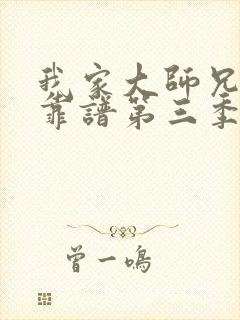 我家大師兄
靠譜第三季
曾一鳴